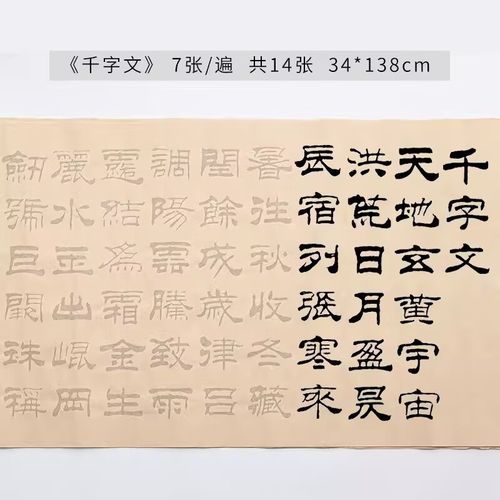 《千字文》 7张/遍 共14张 34*138cm
千字文
天地玄黄宇宙
洪荒日月盈昃
辰宿列張寒來
暑往秋收冬藏
閏餘成歲律呂
調陽雲騰致雨
露結為霜金生
麗水玉出崐岡
劒號巨闕珠稱